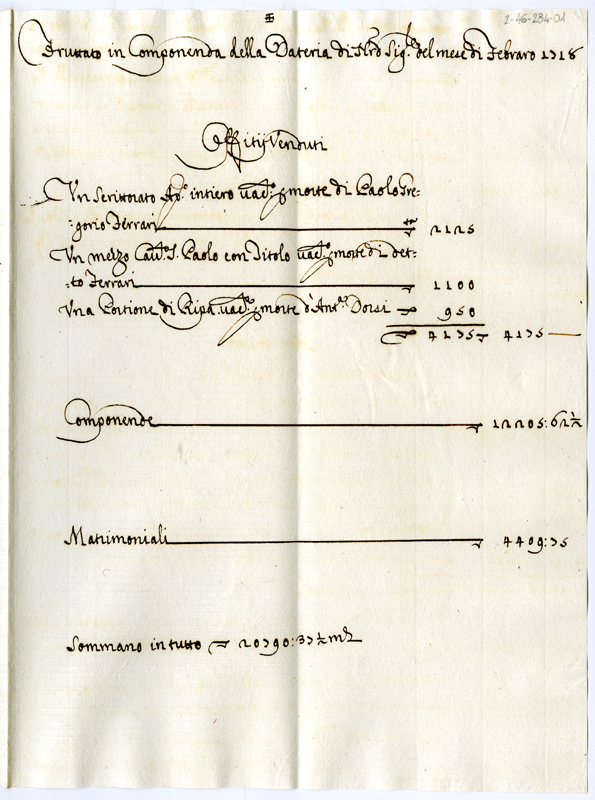 2-46-284-01
Fruttato in Componenda della Dateria di Nro Sigre del mese di Febraro 1718
Offitij Venduti
Un Scrittorato Apo intiero vacto p morte di Paolo Gre-
-gorio Ferrari 2125
Un mezzo Cavto S. Paolo con Titolo vacto p morte di det-
-to Ferrari 1100
Una Portione di Ripa vacta p morte d'Anto Dorsi 950
4175 4175
Componende 12205:62½
Matrimoniali 4409:75
Sommano in tutto 20790:37½ mta